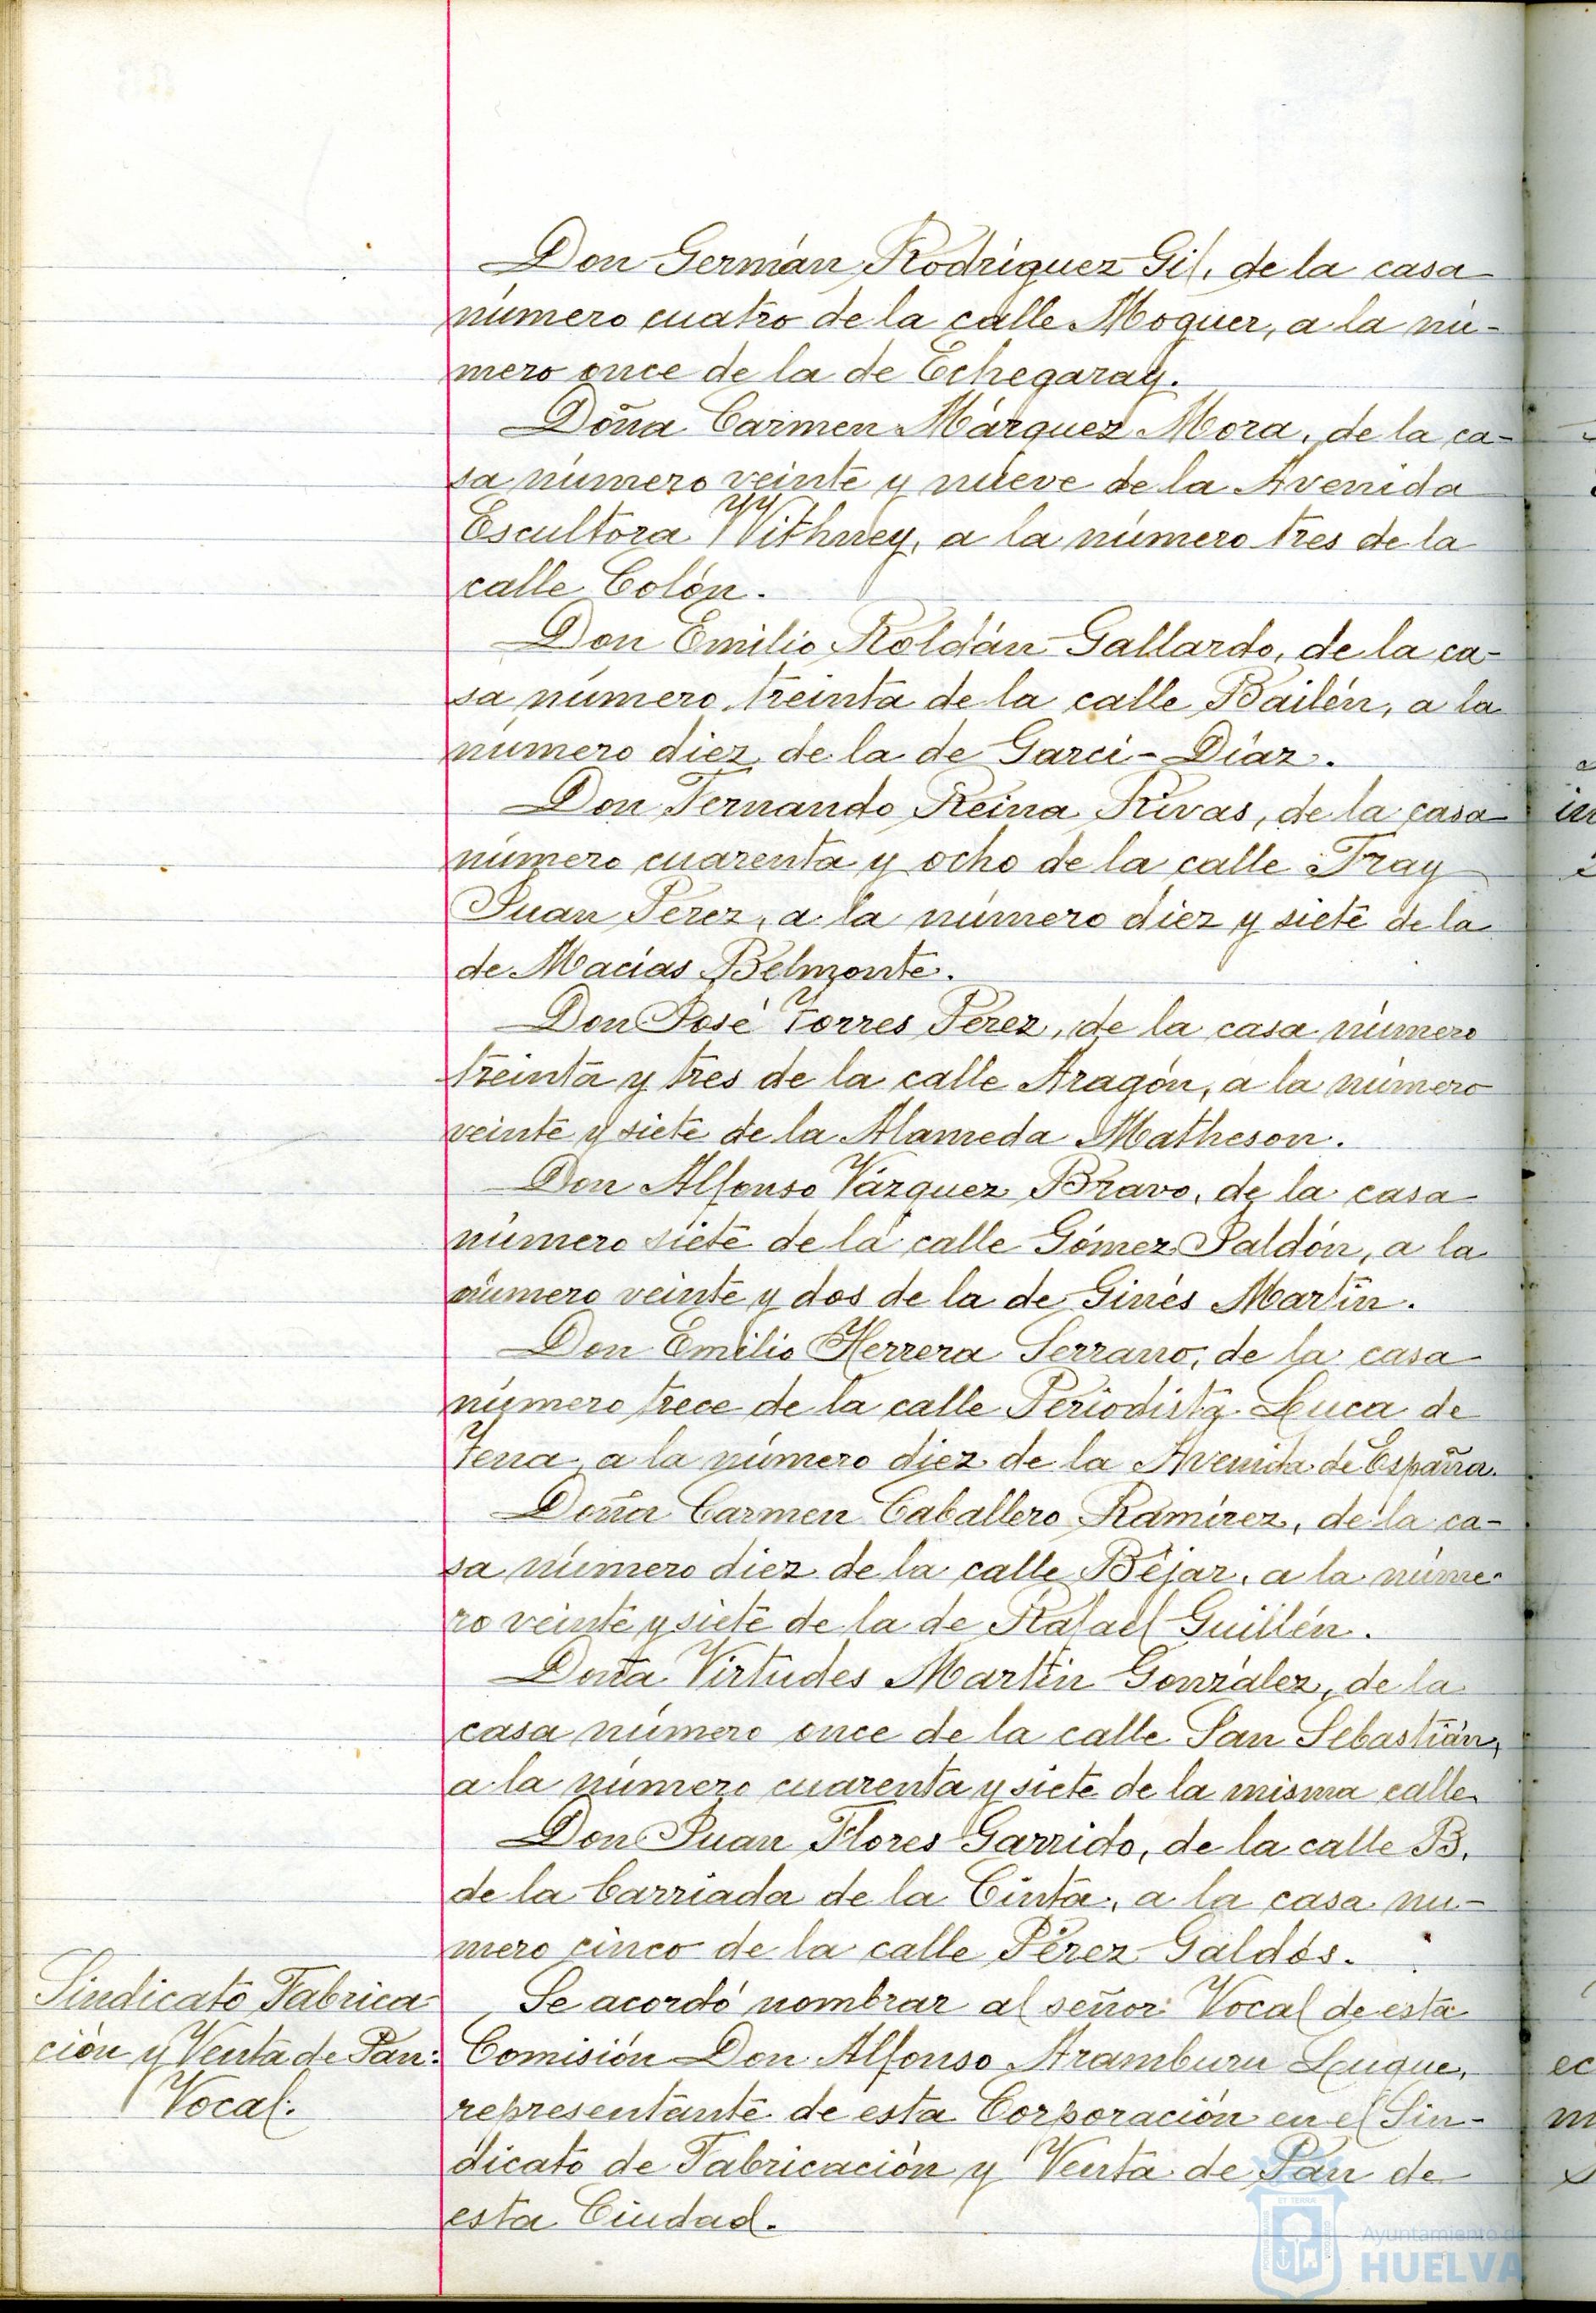 Don Germán Rodríguez Gil, de la casa
número cuatro de la calle Moguer, a la nú-
mero once de la de Echegaray.
Doña Carmen Márquez Mora, de la ca-
sa número veinte y nueve de la Avenida
Escultora Withney, a la número tres de la
calle Colón.
Don Emilio Roldán Gallardo, de la ca-
sa número treinta de la calle Bailén, a la
número diez de la de Garci-Díaz.
Don Fernando Reina Rivas, de la casa
número cuarenta y ocho de la calle Fray
Juan Pérez, a la número diez y siete de la
de Macías Belmonte.
Don José Torres Pérez, de la casa número
treinta y tres de la calle Aragón, a la número
veinte y siete de la Alameda Matheson.
Don Alfonso Vázquez Bravo, de la casa
número siete de la calle Gómez Jaldón, a la
número veinte y dos de la de Ginés Martín.
Don Emilio Herrera Serrano, de la casa
número trece de la calle Periodista Luca de
Tena, a la número diez de la Avenida de España.
Doña Carmen Caballero Ramírez, de la ca-
sa número diez de la calle Béjar, a la núme-
ro veinte y siete de la de Rafael Guillén.
Doña Virtudes Martín González, de la
casa número once de la calle San Sebastián,
a la número cuarenta y siete de la misma calle.
Don Juan Flores Garrido, de la calle B.
de la barriada de la Cinta, a la casa nú-
mero cinco de la calle Pérez Galdós.
Sindicato Fabrica
ción y Venta de Pan:
Vocal.
Se acordó nombrar al señor Vocal de esta
Comisión Don Alfonso Aramburu Luque,
representante de esta Corporación en el Sin-
dicato de Fabricación y Venta de Pan de
esta Ciudad.
Ayuntamiento de
HUELVA